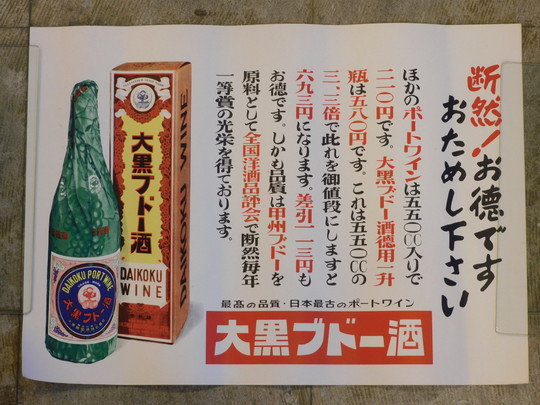 断然!お徳です
おためし下さい
ほかのポートワインは五五〇cc入りで
二一〇円です。大黒ブドー酒徳用一升
瓶は五八〇円です。これは五五〇ccの
三、三倍で此れを御値段にしますと
六九三円になります。差引一一三円も
お徳です。しかも品質は甲州ブドーを
原料として全国洋酒品評会で断然毎年
一等賞の光栄を得ております。
最高の品質・日本最古のポートワイン
大黒ブドー酒
大黒ブドー酒
DAIKOKU
WINE
DAIKOKU WINE
DAIKOKU PORTWINE
大黒ブドー酒